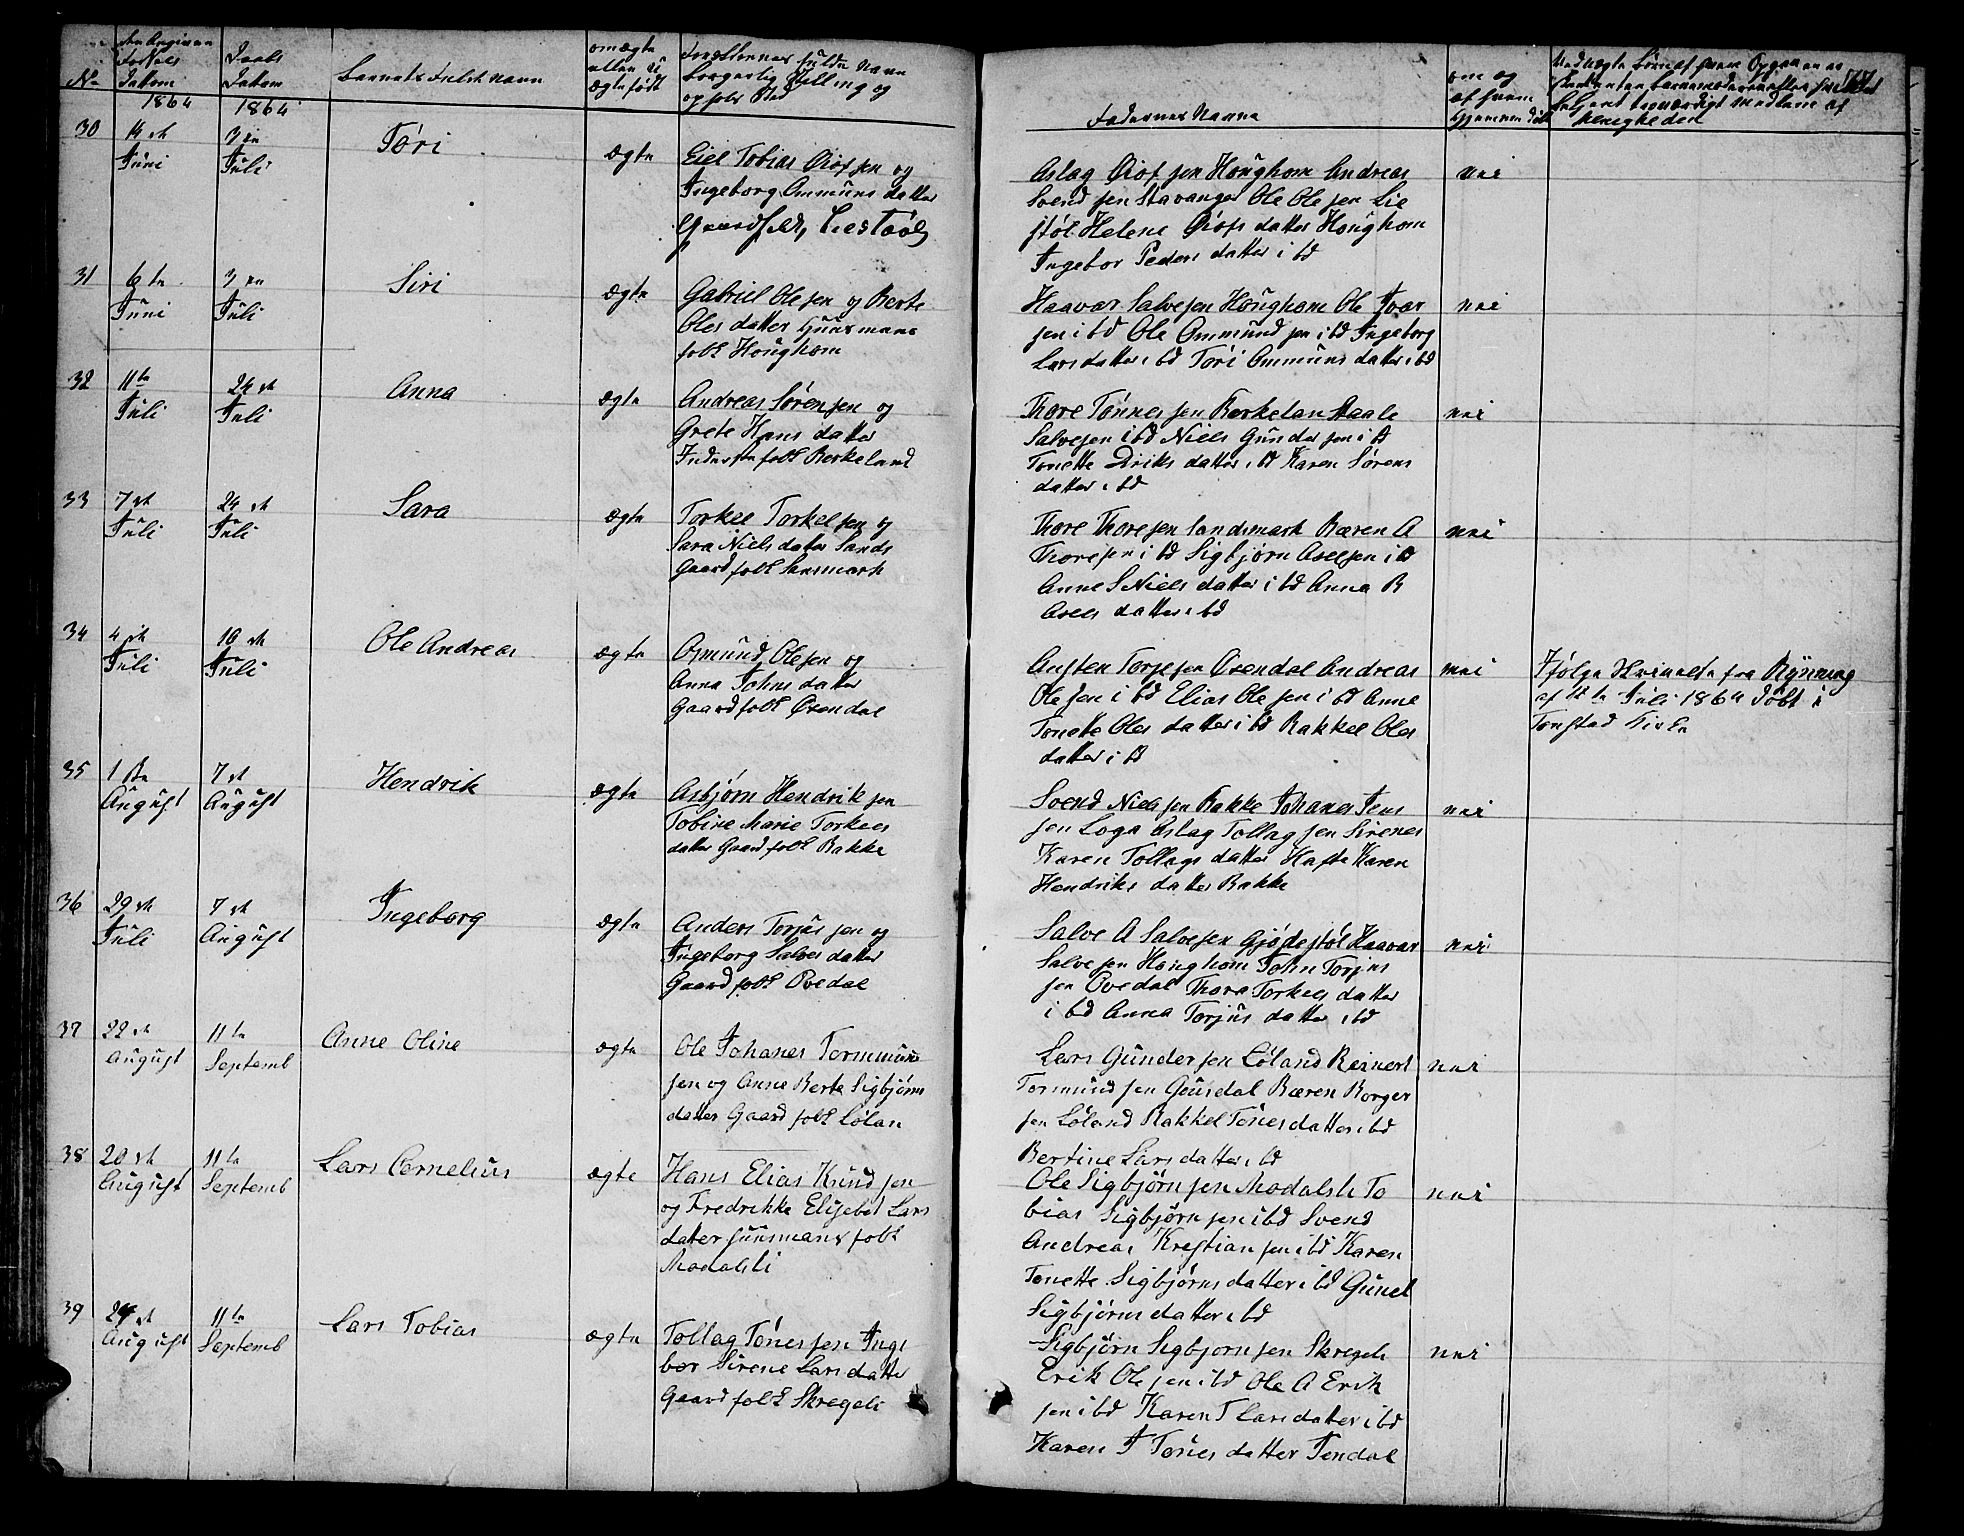 No
Fødsels
Datum
1864
Daabs
Datum
1864
Barnets fulde Navn
om ægte
eller u
ægte født
Forældrenes fulde Navn
borgerlig Stilling og
opholds Sted
Faddernes Navne
om og
af hvem
hjemmedøbt
30
Juni
3 en
Juli
Tøri
ægte
Eiel Tobias Øiofsen og
Ingeborg Ommuns datter
Aslag Øiofsen Houghom Andreas
Svend sen Stavanger Ole Olesen Lie
støl Helene Øiofs datter Houghom
Ingebor Peders datter i bd
nei
31
6 te
Juni
3 en
Juli
Siri
ægte
Gabriel Olesen og Berte
Oles datter Huusmans
folk Houghom
Haavar Salvesen Houghom Ole Ivar
sen i bd Ole Ommund sen i bd Ingeborg
Lars datter i bd Tøri Ommuns datter i bd
nei
32
11 te
Juli
24 de
Juli
Anna
ægte
Andreas Sørensen og
Grete Hans datter
folk Berkeland
Thore Tønnesen Berkelan Staale
Salvesen i bd Niels Gundersen i bd
Tonette Diriks datter i bd Karen Sørens
datter i bd
nei
33
7 de
Juli
24 de
Juli
Sara
ægte
Torkel Torkelsen og
Sara Niels datter Sands
Gaardfolk Sansmark
Thore Thoresen Sandsmark Bæren A
Thoresen i bd Sigbjørn Axelsen i bd
Anne S Niels datter i bd Anna B
Axels datter i bd
nei
34
4 de
Juli
10 de
Juli
Ole Andreas
ægte
Osmund Olesen og
Anna Johns datter
Gaardfolk Øxendal
Austen Torjesen Øxendal Andreas
Olesen i bd Elias Olesen i bd Anne
Tonette Oles datter i bd Rakkel Oles
datter i bd
nei
Ifølge fra
af Juli 1864 døbt i
Tonstad Kirke
35
1 ste
August
7 de
August
Hendrik
ægte
Asbjørn Hendriksen
Tobine Marie Torkels
datter Gaardfolk Bakke
Svend Nielsen Bakke Johanes Jens
sen Loga Aslag Tollagsen Sirenes
Karen Tollags datter Hafte Karen
Hendriks datter Bakke
nei
36
29 de
Juli
7 de
August
Ingeborg
ægte
Anders Torjus sen og
Ingeborg Salves datter
Gaardfolk Ovedal
Salve A Salvesen Gjødestøl Haavar
Salvesen Houghom John Torjus
sen Ovedal Thora Torkels datter
i bd Anna Torjus datter i bd
nei
37
22 de
August
11 te
Septemb
Anne Oline
ægte
Ole Johanes Tormmun
sen og Anne Berte Sigbjørns
datter Gaardfolk Løland
Lars Gundersen Løland Reinert
Tormundsen Gusdal Bæren Borger
sen Løland Rakkel Tønes datter i bd
Bertine Lars datter i bd
nei
38
20 de
August
11 te
Septemb
Lars Cornelius
ægte
Hans Elias Knudsen
og Fredrikke Elisebet Lars
datter Huusmansfolk
Modalsli
Ole Sigbjørnsen Modalsli To
bias Sigbjørnsen i bd Svend
Andreas Krestiansen i bd Karen
Tonette Sigbjørns datter i bd Gunel
Sigbjørns datter i bd
nei
39
August
11 te
Septemb
Lars Tobias
ægte
Tollag Tønesen Inge
bor Sirene Lars datter
Gaardfolk Skregeli
Sigbjørn Sigbjørnsen Skregeli
Erik Olesen i bd Ole A Erik
sen i bd Karen T Lars datter i bd
Karen J Tønes datter Jendal
nei